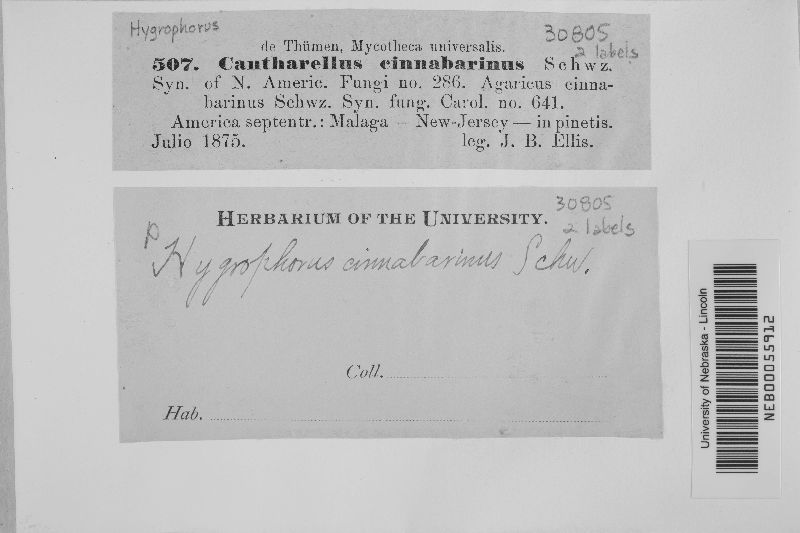 Hygrophorus
30805
2 labels
de Thümen, Mycotheca universalis.
507. Cantharellus cinnabarinus Schwz.
Syn. of N. Americ. Fungi no. 286. Agaricus cinna-
barinus Schwz. Syn. fung. Carol. no. 641.
America septentr.: Malaga — New-Jersey — in pinetis.
Julio 1875. leg. J. B. Ellis.
30805
2 labels
HERBARIUM OF THE UNIVERSITY.
P
Hygrophorus cinnabarinus Schw.
Coll.
Hab.
University of Nebraska - Lincoln
NEB00055912